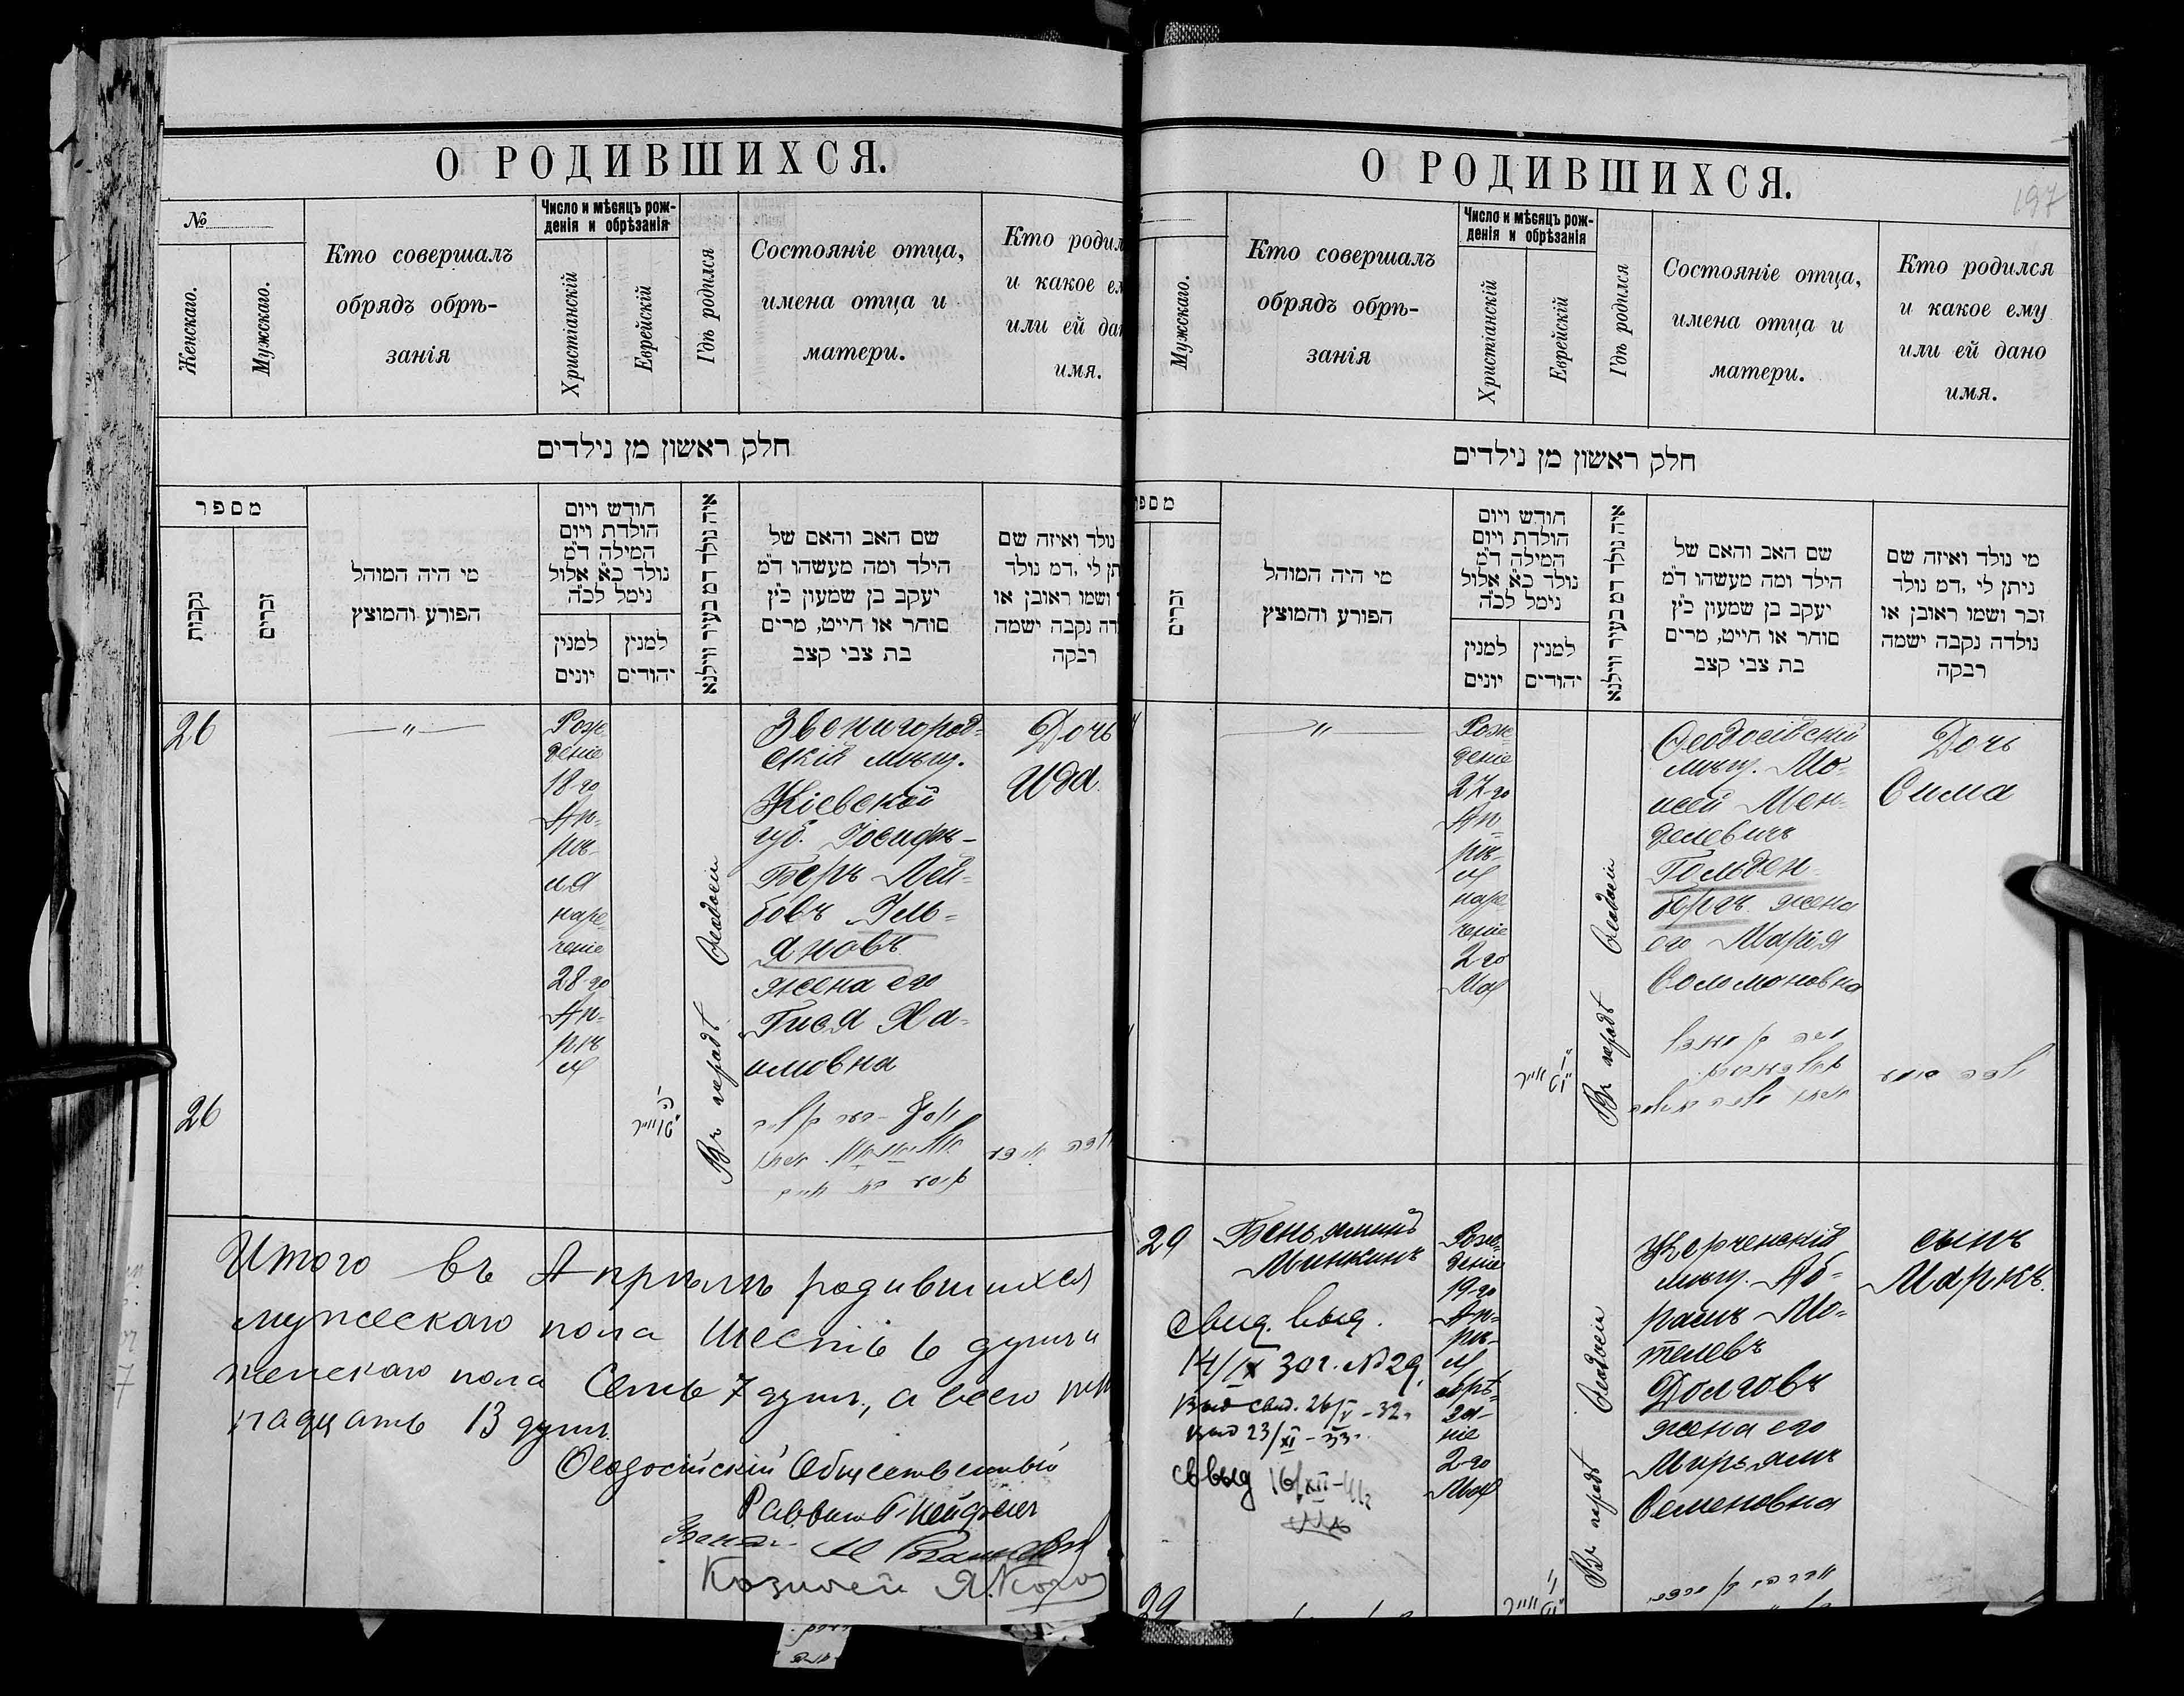 О РОДИВШИХСЯ.
№
Женскаго.
Мужскаго.
Кто совершалъ
обрядъ обрѣ-
занія
Число и мѣсяцъ рож-
денія и обрѣзанія
Христіанскій
Еврейскій
Гдѣ родился
Состояніе отца,
имена отца и
матери.
Кто родил
и какое е
или ей да
имя.
חלק ראשון מן נילדים
מספר
נקבות
זכרים
מי היה המוהל
הפורע והמוצץ
חודש ויום
הולדת ויום
המילה ד״מ
נולד כ״א אלול
נימל לכ״ה
למנין
יונים
למנין
יהודים
איה נולד דמ בעיר ווילנא
שם האב והאם של
הילד ומה מעשהו ד״מ
יעקב בן שמעון כ״ץ
סוחר או חייט, מרים
בת צבי קצב
נולד ואיזה שם
תן לי ,דמ נולד
ושמו ראובן או
דה נקבה ישמה
רבקה
26
— „ —
Рож-
деніе
18-го
Ап-
рѣ-
ля
наре
ченіе
28-го
Ап-
рѣ
ля
Въ городѣ Ѳеодосіи
Звенигород-
скій мѣщ.
Кіевской
губ. Іосифъ-
Беръ Лей-
бовъ Уль-
яновъ
жена его
Гися Ха-
имовна
Дочь
Ида.
26
Итого въ Апрѣлѣ родившихся
мужескаго пола шесть 6 душъ и
женскаго пола семь 7 душ., а всего три
надцать 13 душъ.
Ѳеодосійскій Общественный
Раввинъ
Казначей
О РОДИВШИХСЯ.
197
Мужскаго.
Кто совершалъ
обрядъ обрѣ-
занія
Число и мѣсяцъ рож-
денія и обрѣзанія
Христіанскій
Еврейскій
Гдѣ родился
Состояніе отца,
имена отца и
матери.
Кто родился
и какое ему
или ей дано
имя.
חלק ראשון מן נילדים
מספר
זכרים
מי היה המוהל
הפורע והמוצץ
חודש ויום
הולדת ויום
המילה ד״מ
נולד כ״א אלול
נימל לכ״ה
למנין
יונים
למנין
יהודים
איה נולד דמ בעיר ווילנא
שם האב והאם של
הילד ומה מעשהו ד״מ
יעקב בן שמעון כ״ץ
סוחר או חייט, מרים
בת צבי קצב
מי נולד ואיזה שם
ניתן לי ,דמ נולד
זכר ושמו ראובן או
נולדה נקבה ישמה
רבקה
— „ —
Рож-
деніе
27-го
Ап-
рѣ-
ля
наре
ченіе
2-го
Мая
Въ городѣ Ѳеодосіи
Ѳеодосійскій
мѣщ. Мо-
исей Мен-
делевичъ
Гольден-
бергъ жена
его Марія
Соломоновна
Дочь
Сима
29
Беньяминъ
Минкинъ
Рож-
деніе
19-го
Ап-
рѣ-
ля
обрѣ-
за-
ніе
2-го
Мая
Въ городѣ Ѳеодосіи
Керченскій
мѣщ. Аб-
рамъ Мо-
телевъ
Долговъ
жена его
Мирьямъ
Семеновна
сынъ
Маркъ.
свид. выд.
14/IX 30 г. № 29.
выд свид. 26/V - 32 г.
выд 23/XI - 33 г.
св выд 16/XII-41 г.
29